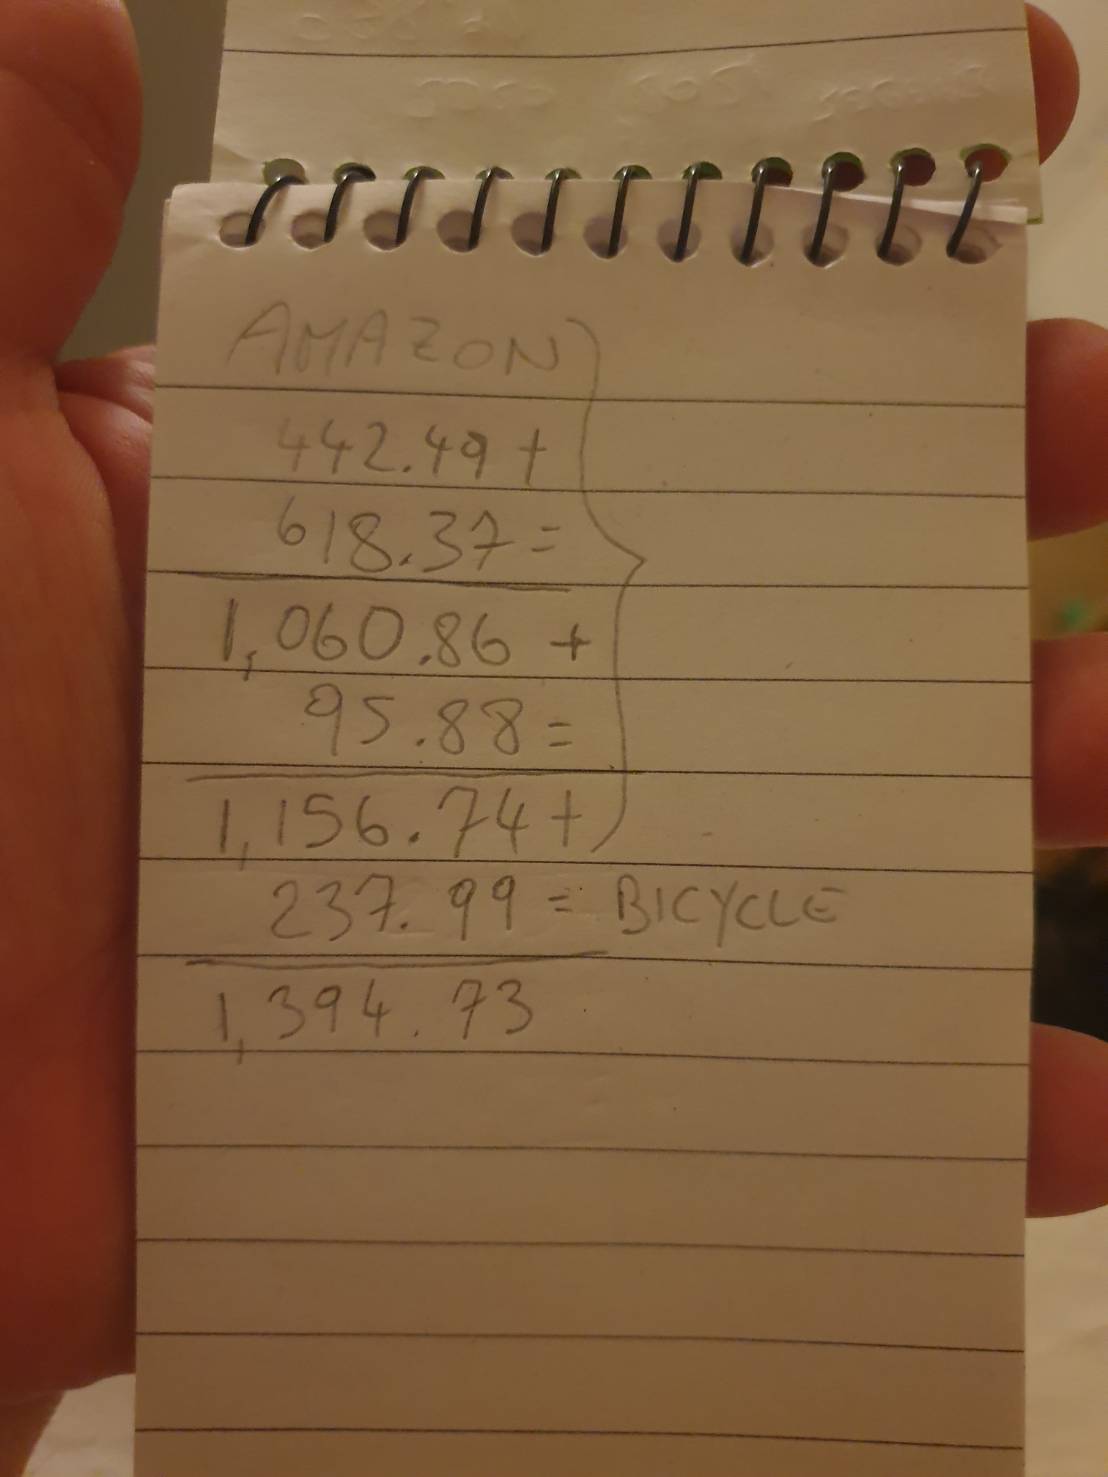 AMAZON
442.49 +
618.37 =
1,060.86 +
95.88 =
1,156.74 +
237.99 = BICYCLE
1,394.73